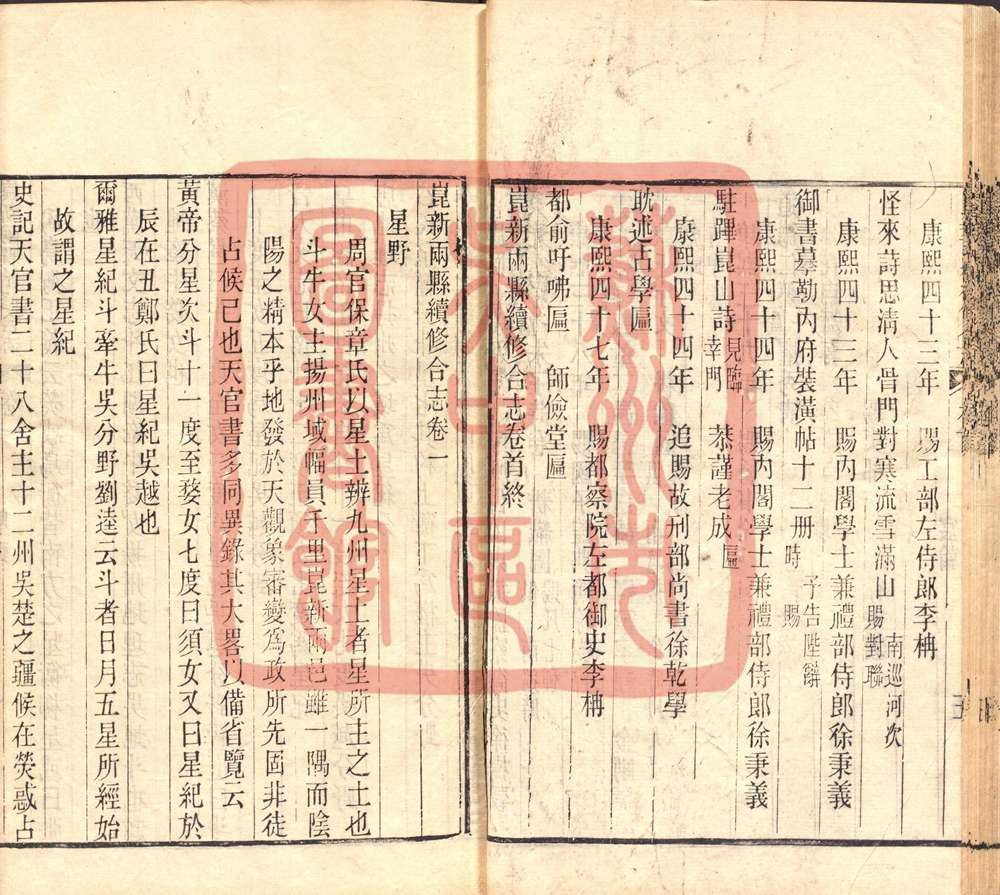 康熙四十三年　賜工部左侍郎李柟
怪來詩思淸人骨門對寒流雪滿山　南巡河次賜對聯
康熙四十三年　賜內閣學士兼禮部侍郎徐秉義
御書摹勒內府裝潢帖十二册　時予告陛辭賜
康熙四十四年　賜內閣學士兼禮部侍郎徐秉義
駐蹕崑山詩　見臨幸門　恭謹老成匾
康熙四十四年　追賜故刑部尚書徐乾學
耽述古學匾
康熙四十七年　賜都察院左都御史李柟
都俞吁咈匾　師儉堂匾
崑新兩縣續修合志卷首終
崑新兩縣續修合志卷一
星野
周官保章氏以星土辨九州星土者星所主之土也
斗牛女主揚州域幅員千里崑新兩邑雖一隅而陰
陽之精本乎地發於天觀象審變爲政所先固非徒
占候已也天官書多同異錄其大畧以備省覽云
黃帝分星次斗十一度至婺女七度曰須女又曰星紀於
辰在丑鄭氏曰星紀吳越也
爾雅星紀斗牽牛吳分野劉逵云斗者日月五星所經始
故謂之星紀
史記天官書二十八舍主十二州吳楚之疆候在熒惑占